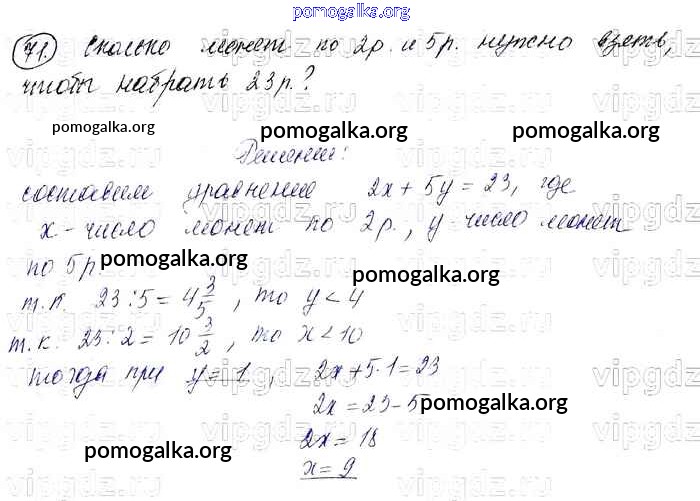 pomogalka.org
71. Сколько монет по 2р. и 5р. нужно взять,
чтобы набрать 23р.?
pomogalka.org pomogalka.org pomogalka.org
Решение:
составим уравнение 2x + 5y = 23, где
x - число монет по 2р., y число монет
по 5р pomogalka.org
pomogalka.org
т.к. 23 : 5 = 4 3/5, то y < 4
т.к. 23 : 2 = 10 3/2, то x < 10
тогда при y = 1, 2x + 5·1 = 23
2x = 23 - 5 pomogalka.org
pomogalka.org 2x = 18
x = 9
pomogalka.org